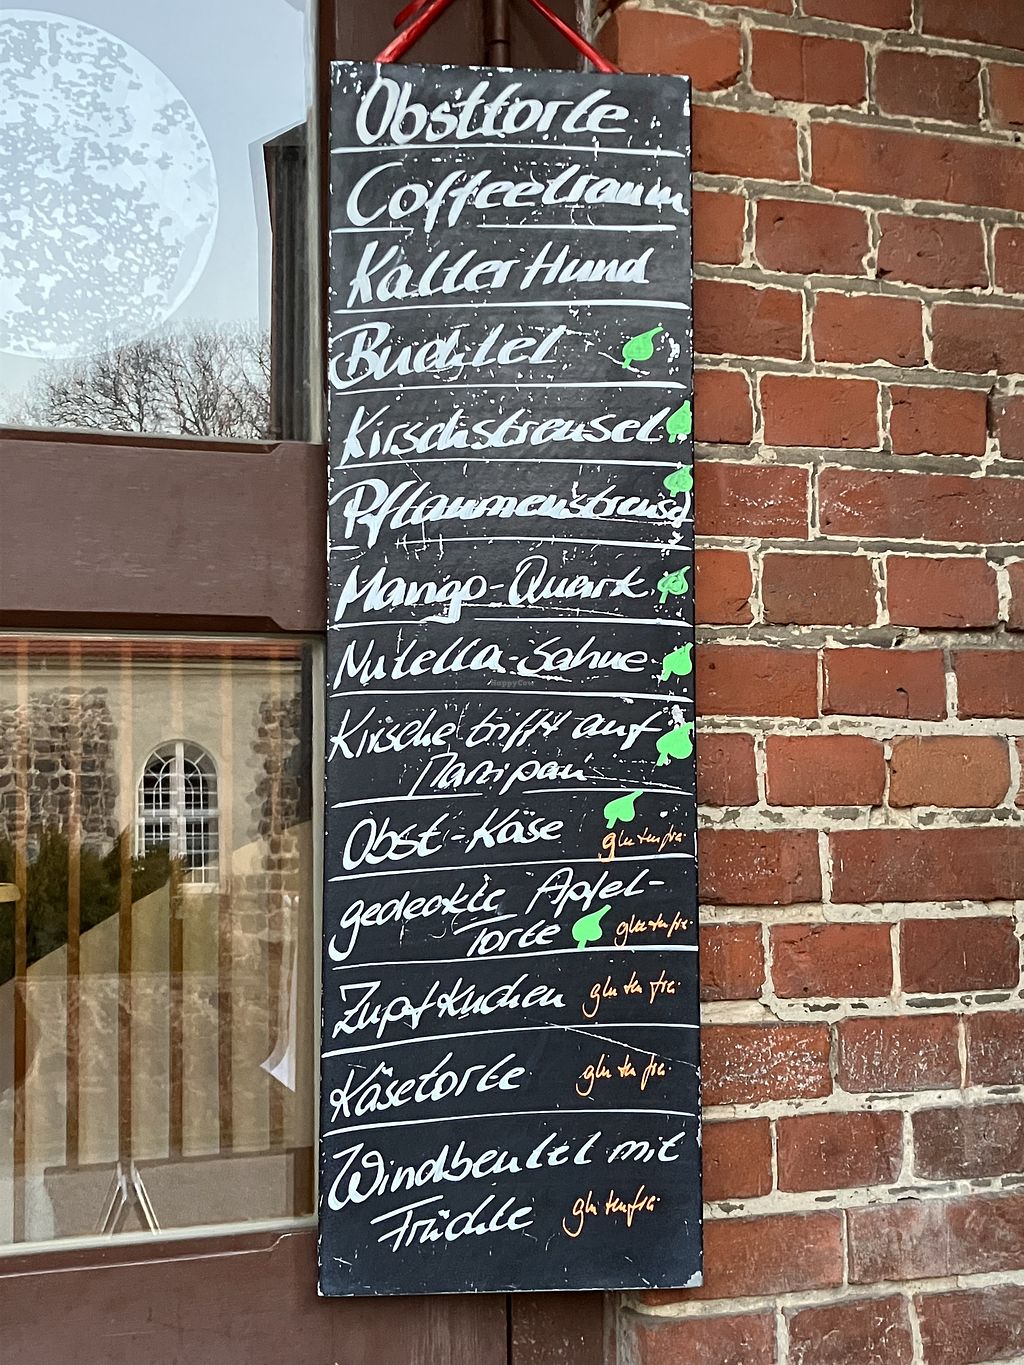 Obsttorte
Coffeetraum
Kalter Hund
Buchtel
Kirschstreusel
Pflaumenstreusel
Mango-Quark
Nutella-Sahne
HappyCow
Kirsche trifft auf
Marzipan
Obst-Käse
glutenfrei
gedeckte Apfel-
Torte glutenfrei
Zupfkuchen glutenfrei
Käsetorte glutenfrei
Windbeutel mit
Früchte glutenfrei